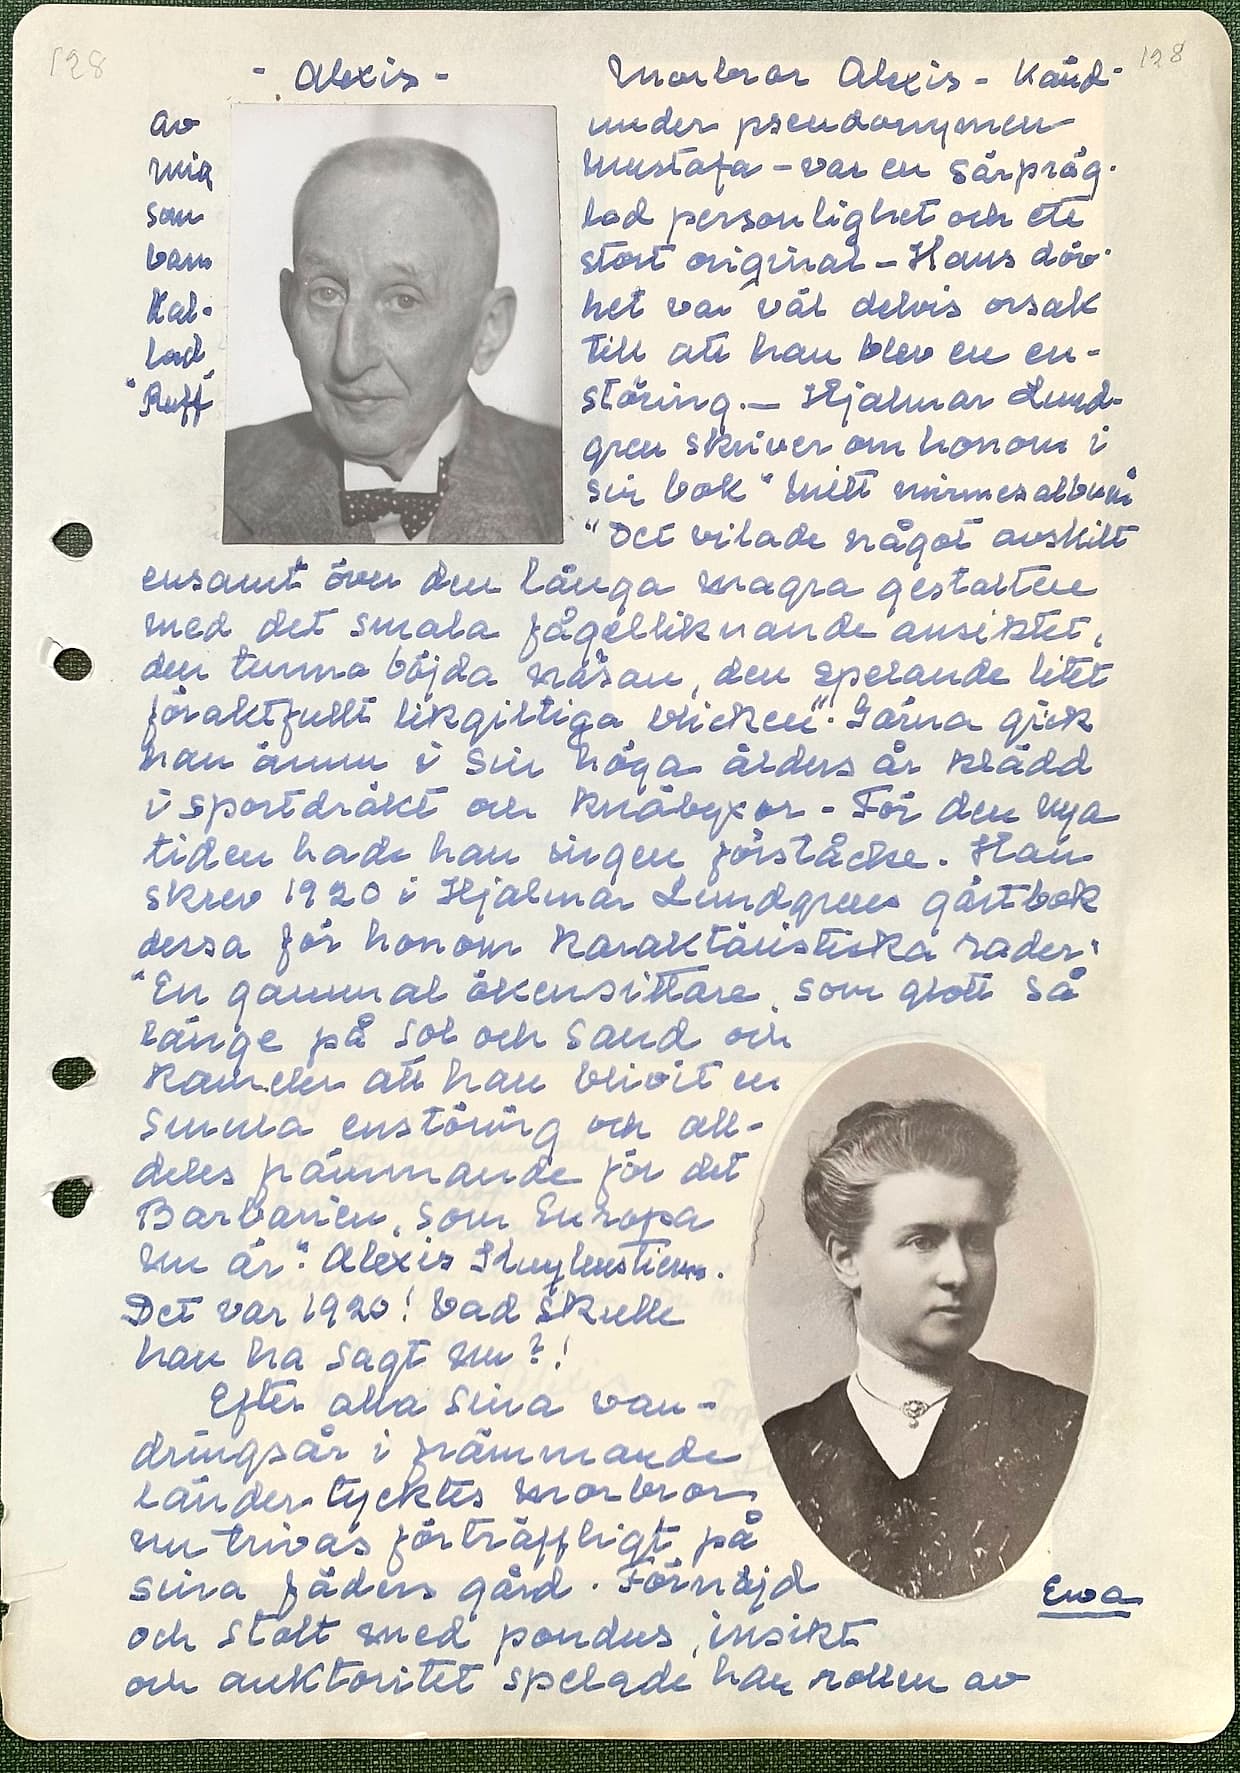 128
128
- Alexis -
av
mig
som
barn
kal-
lad
"Ruff"
Morbror Alexis - Känd
under pseudonymen
Mustafa - var en särpräg-
lad personlighet och ett
stort original - Hans döv-
het var väl delvis orsak
till att han blev en en-
störing. - Hjalmar Lund-
gren skriver om honom i
sin bok "Mitt minnesalbum"
"Det vilade något avskilt
ensamt över den långa magra gestalten
med det smala fågelliknande ansiktet,
den tunna böjda näsan, den spelande litet
föraktfullt likgiltiga blicken". Gärna gick
han ännu i sin höga ålders år klädd
i sportdräkt och knäbyxor - För den nya
tiden hade han ingen förståelse. Han
skrev 1920 i Hjalmar Lundgrens gästbok
dessa för honom karaktäristiska rader:
"En gammal ökensittare, som glott så
länge på sol och sand och
kameler att han blivit en
simla enstöring och all-
deles främmande för det
Barbarien, som Europa
nu är". Alexis Kuylenstierna.
Det var 1920! Vad skulle
han ha sagt nu?!
Efter alla sina van-
dringsår i främmande
länder tycktes morbror
nu trivas förträffligt på
sina fäders gård. Förnöjd
och stolt med pondus, insikt
och auktoritet spelade han rollen av
Ewa